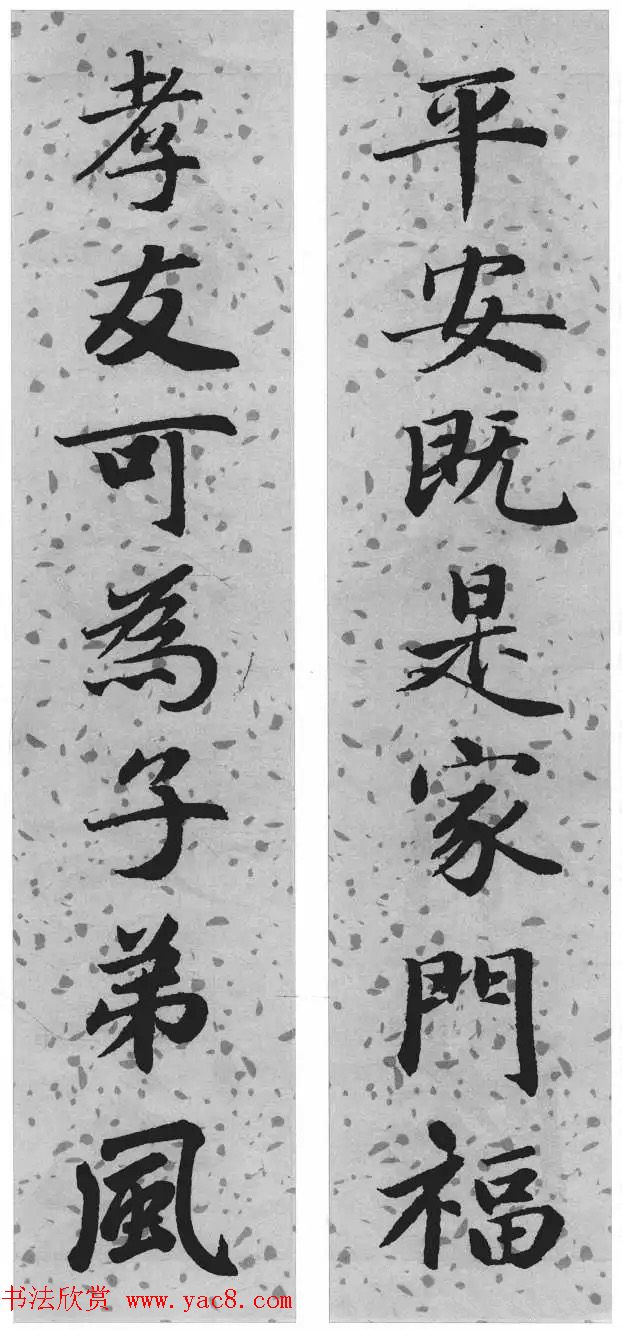 平安既是家門福
孝友可為子弟風
书法欣赏 www.yac8.com